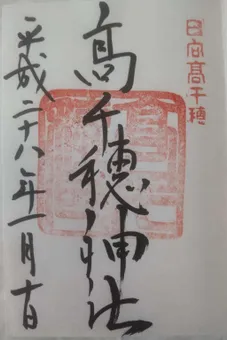 日向髙千穂
髙千穂神社
平成二十八年一月十日